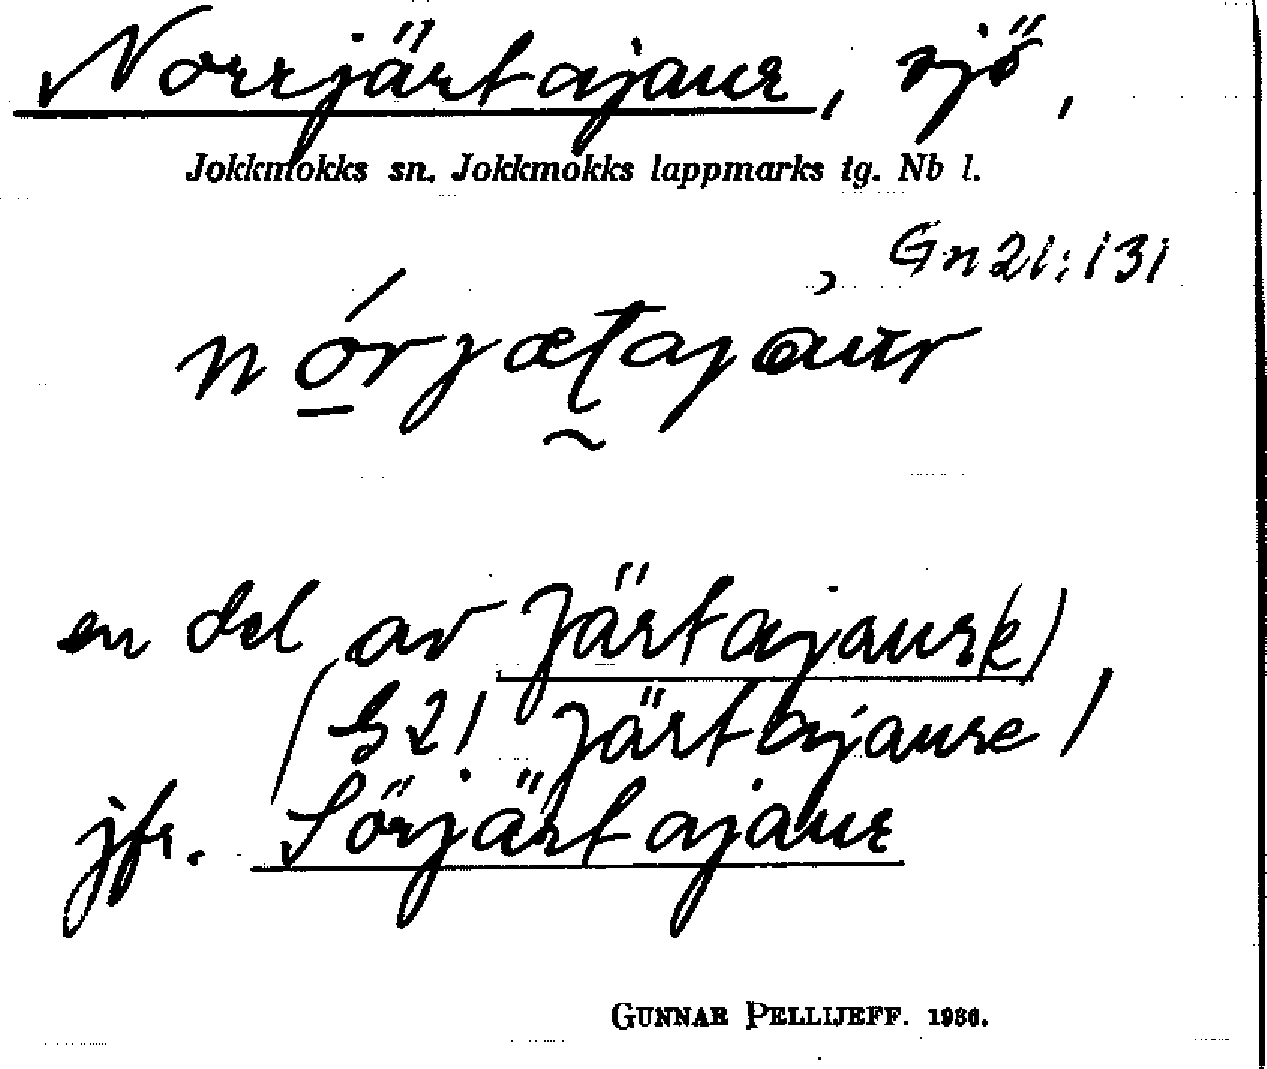 Norrjärtajaur, sjö,
Jokkmokks sn. Jokkmokks lappmarks tg. Nb l.
Gn 21:131
en del av Järtajaur(e)
(G 21 Järtajaure)
jfr. Sörjärtajaur
GUNNAR PELLIJEFF. 1986.